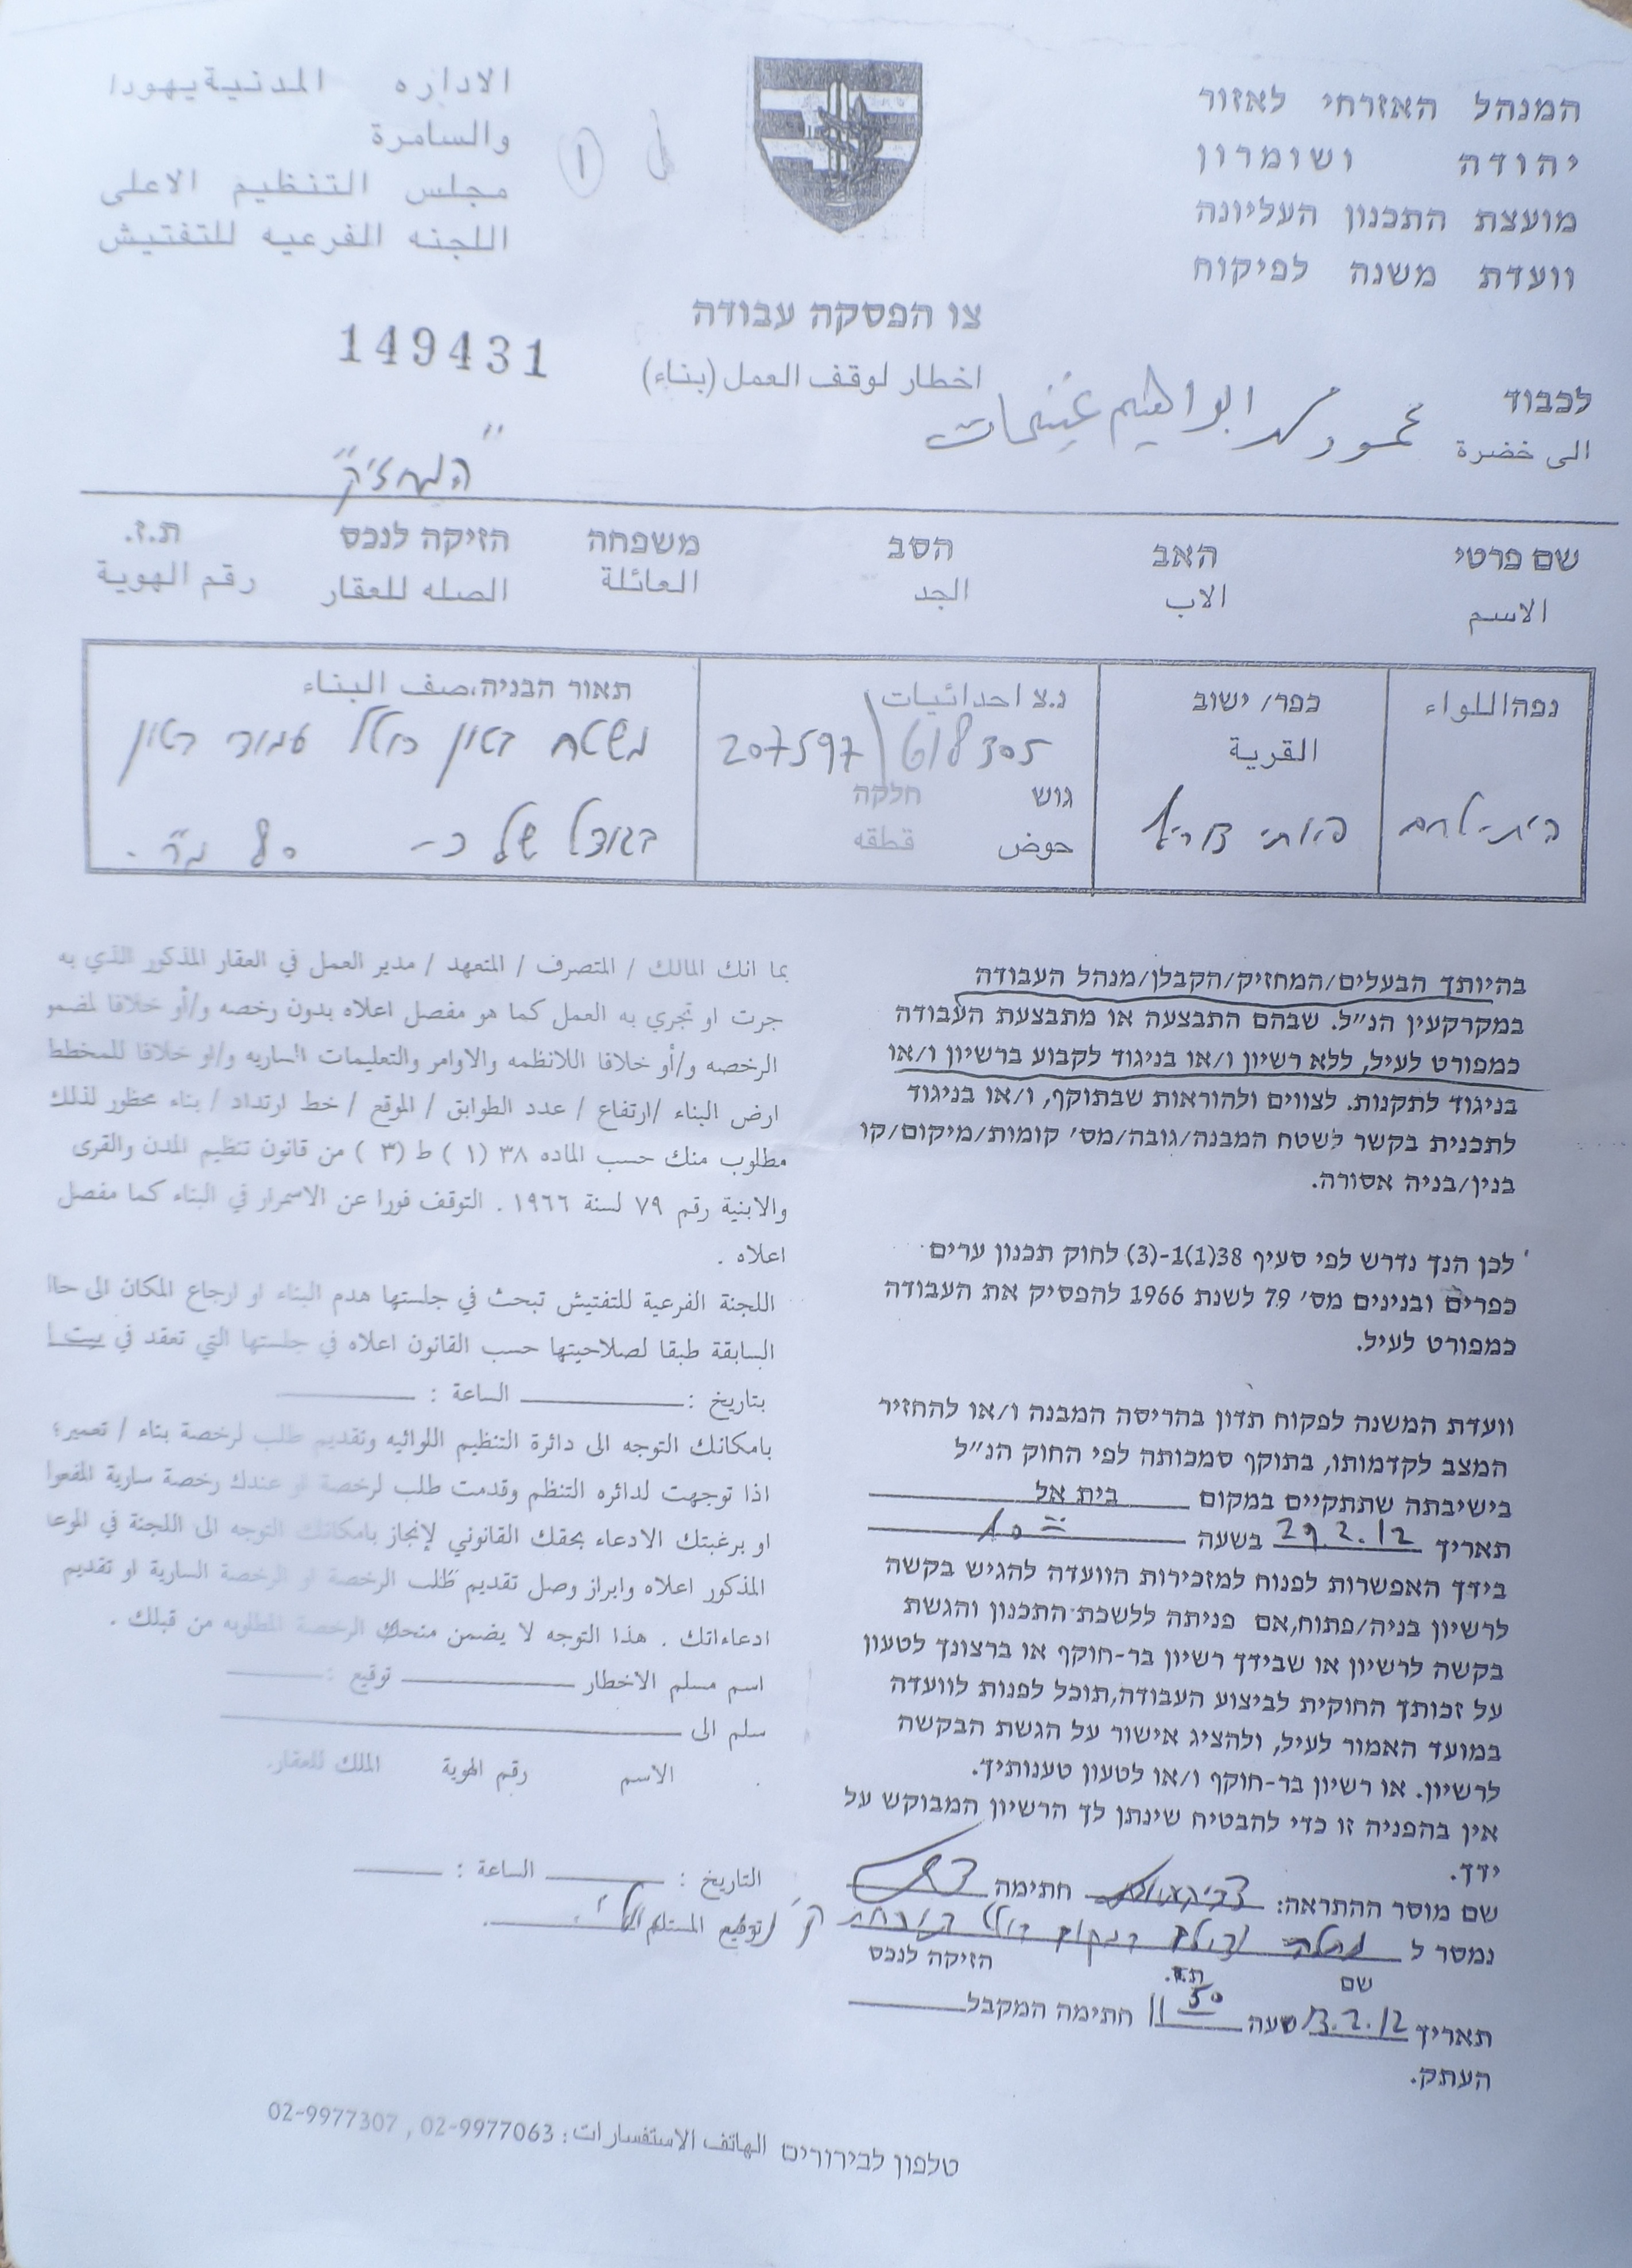 המנהל האזרחי לאזור
יהודה ושומרון
מועצת התכנון העליונה
וועדת משנה לפיקוח
الاداره المدنية يهودا
والسامرة
مجلس التنظيم الاعلى
اللجنه الفرعيه للتفتيش
1
צו הפסקה עבודה
اخطار لوقف العمل (بناء)
149431
לכבוד
الى حضرة
محمود ابراهيم غنيمات
"המחזיק"
שם פרטי האב הסב משפחה הזיקה לנכס ת.ז.
الاسم الاب الجد العائلة الصله للعقار رقم الهوية
נפה اللواء
בית-לחם
כפר/ ישוב
القرية
נ.צ احداثيات
207597 / 618305
גוש חלקה
حوض قطقه
תאור הבניה، صف البناء
משטח בטון כולל עמודי בטון
בגודל של כ- 80 מ"ר.
בהיותך הבעלים/המחזיק/הקבלן/מנהל העבודה
במקרקעין הנ"ל. שבהם התבצעה או מתבצעת העבודה
כמפורט לעיל, ללא רשיון ו/או בניגוד לקבוע ברשיון ו/או
בניגוד לתקנות. לצווים ולהוראות שבתוקף, ו/או בניגוד
לתכנית בקשר לשטח המבנה/גובה/מס' קומות/מיקום/קו
בנין/בניה אסורה.
לכן הנך נדרש לפי סעיף 38(1)1-(3) לחוק תכנון ערים
כפרים ובנינים מס' 79 לשנת 1966 להפסיק את העבודה
כמפורט לעיל.
וועדת המשנה לפקוח תדון בהריסה המבנה ו/או להחזיר
המצב לקדמותו, בתוקף סמכותה לפי החוק הנ"ל
בישיבתה שתתקיים במקום בית אל
תאריך 29.2.12 בשעה 10
בידך האפשרות לפנוח למזכירות הוועדה להגיש בקשה
לרשיון בניה/פתוח,אם פניתה ללשכת התכנון והגשת
בקשה לרשיון או שבידך רשיון בר-חוקף או ברצונך לטעון
על זכותך החוקית לביצוע העבודה,תוכל לפנות לוועדה
במועד האמור לעיל, ולהציג אישור על הגשת הבקשה
לרשיון. או רשיון בר-חוקף ו/או לטעון טענותיך.
אין בהפניה זו כדי להבטיח שינתן לך הרשיון המבוקש על
ידך.
שם מוסר ההתראה: חתימה
נמסר ל
שם ת.ז. הזיקה לנכס
תאריך 13.2.12 שעה 11 50 חתימה המקבל
העתק.
بما انك المالك / المتصرف / المتعهد / مدير العمل في العقار المذكور الذي به
جرت او تجري به العمل كما هو مفصل اعلاه بدون رخصه و/أو خلافا لمضمو
الرخصه و/أو خلافا اللانظمه والاوامر والتعليمات الساريه و/او خلافا للمخطط
ارض البناء /ارتفاع / عدد الطوابق / الموقع / خط ارتداد / بناء محظور لذلك
مطلوب منك حسب الماده ٣٨ (١ ) ط (٣ ) من قانون تنظيم المدن والقرى
والابنية رقم ٧٩ لسنة ١٩٦٦ . التوقف فورا عن الاسمرار في البناء كما مفصل
اعلاه .
اللجنة الفرعية للتفتيش تبحث في جلستها هدم البناء او ارجاع المكان الى حاا
السابقة طبقا لصلاحيتها حسب القانون اعلاه في جلستها التي تعقد في بيت ا
بتاريخ : الساعة :
بامكانك التوجه الى دائرة التنظيم اللوائيه وتقديم طلب لرخصة بناء / تعمير؛
اذا توجهت لدائره التنظم وقدمت طلب لرخصة او عندك رخصة سارية المفعوا
او برغبتك الادعاء بحقك القانوني لإنجاز بامكانك التوجه الى اللجنة في الموعا
المذكور اعلاه وابراز وصل تقديم ظلب الرخصة او الرخصة السارية او تقديم
ادعاءاتك . هذا التوجه لا يضمن منحك الرخصة المطلوبه من قبلك .
اسم مسلم الاخطار توقيع :
سلم الى
الاسم رقم الهوية الملك للعقار.
التاريخ : الساعة :
توقيع المستلم
טלפון לבירורים الهاتف الاستفسارات : 02-9977063 , 02-9977307